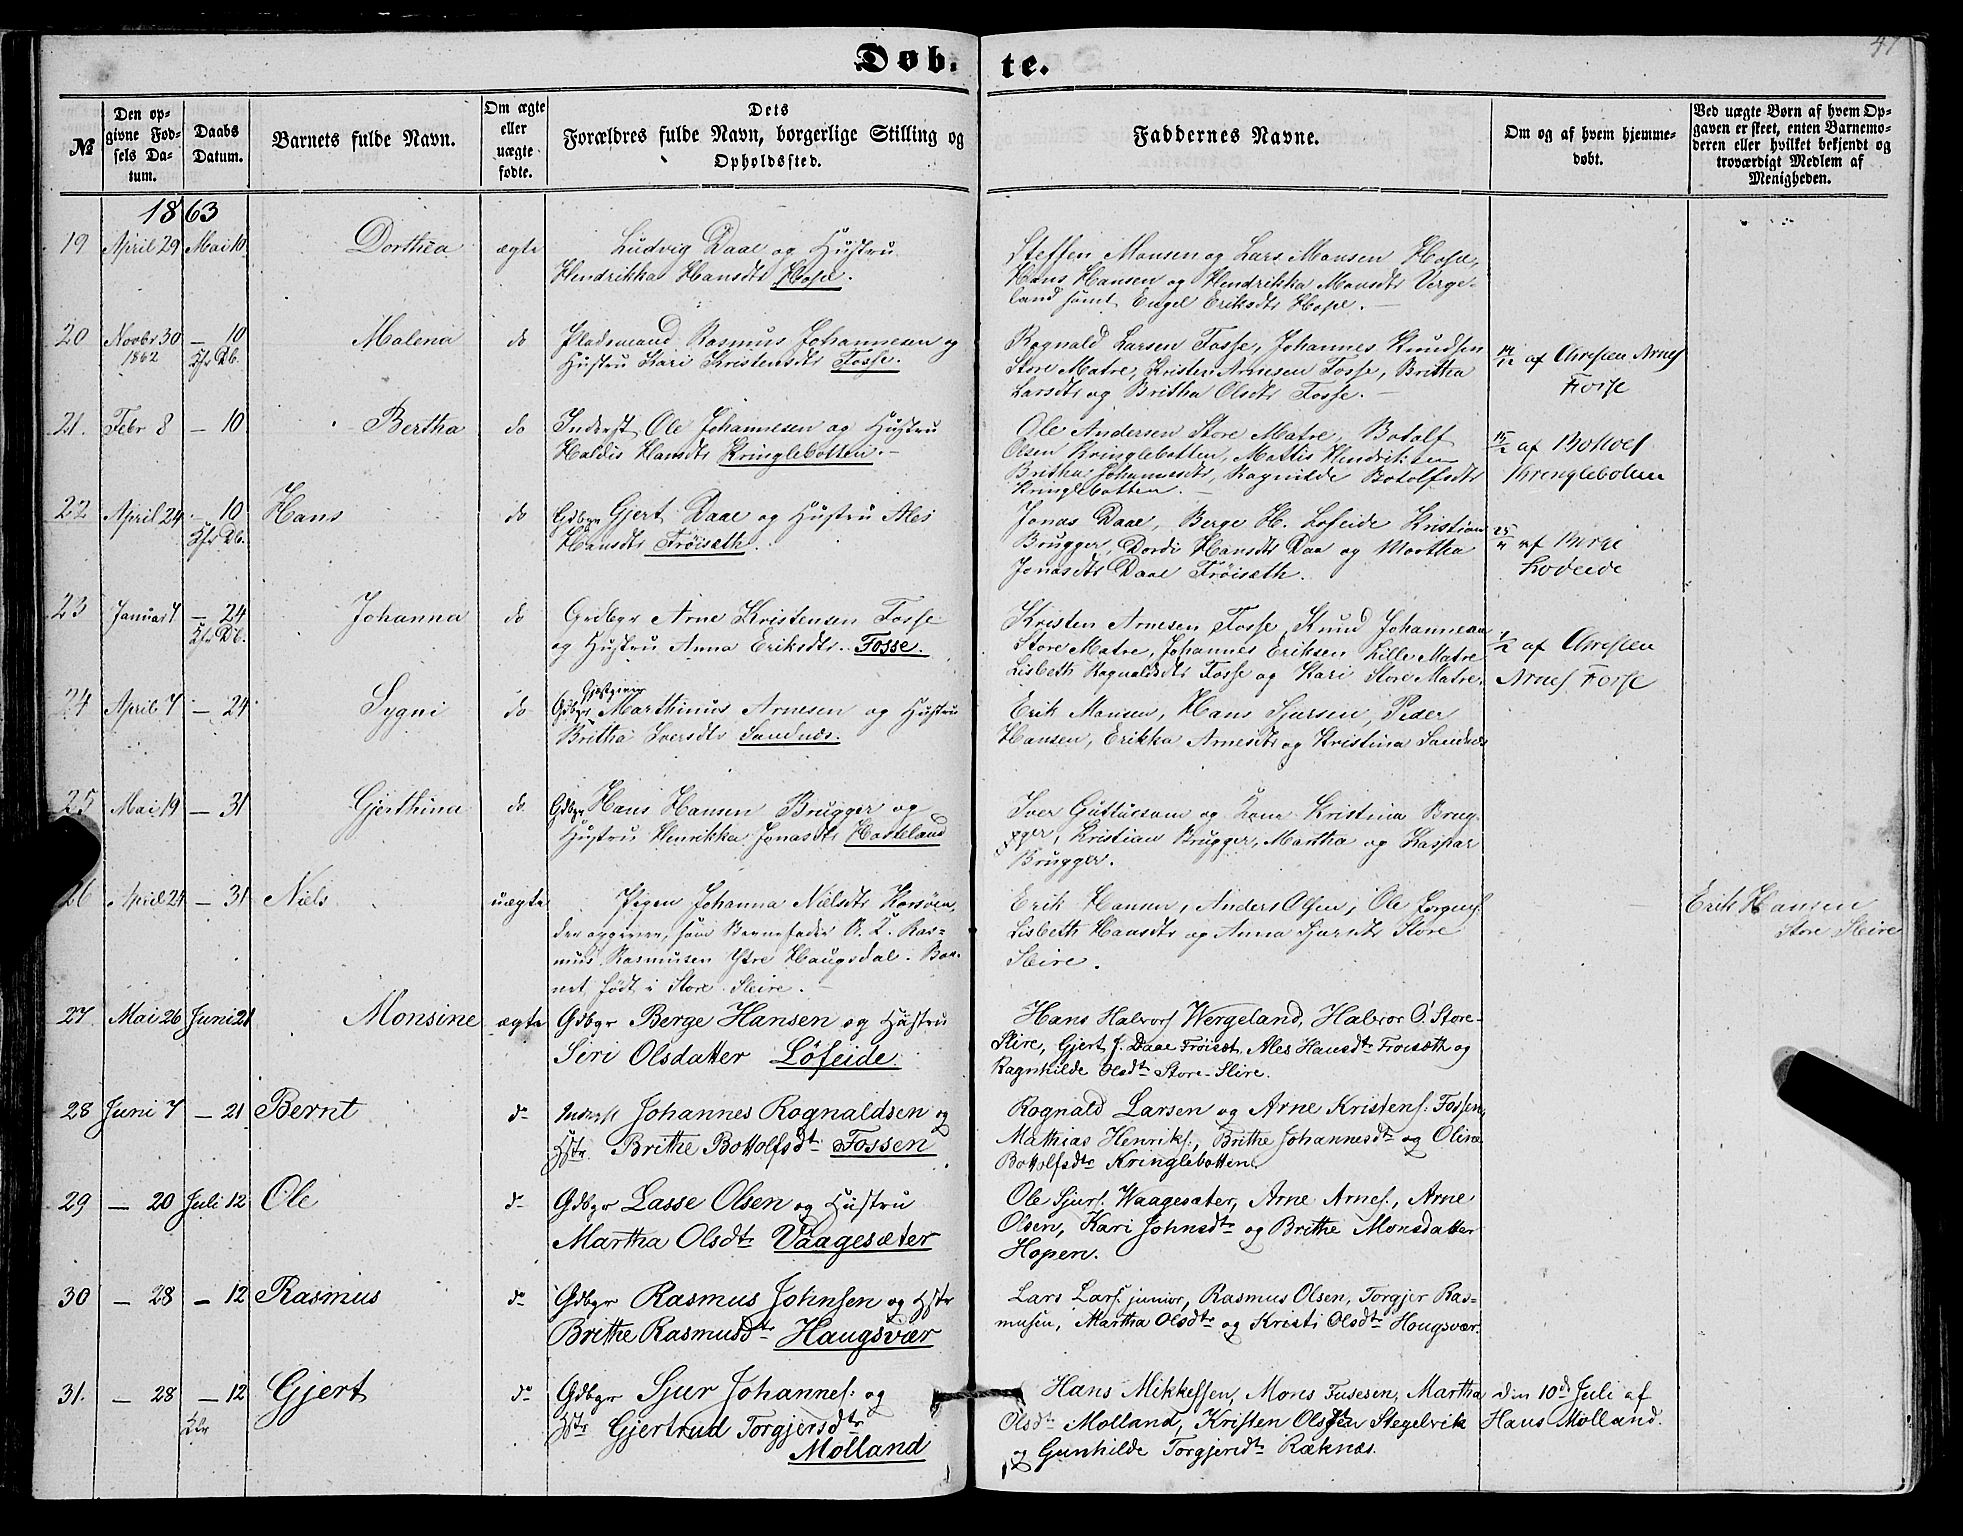 Døb- te.
47
№
Den opgivne Fødsels Datum.
Daabs Datum.
Barnets fulde Navn.
Om ægte eller uægte fødte.
Dets Forældres fulde Navn, borgerlige Stilling og Opholdssted.
Faddernes Navne.
Om og af hvem hjemmedøbt.
Ved uægte Børn af hvem Opgaven er skeet, enten Barnemoderen eller hvilket bekjendt og troværdigt Medlem af Menigheden.
1863
19 April 29 Mai 10 Dorthea ægte Ludvig Daae og Hustru
Hendrikka Hansdtr Hope.
Steffen Monsen og Lars Monsen Hope,
Hans Hansen og Hendrikka Monsdtr Verge-
land samt Engel Eriksdtr Hope.
20 Novbr 30 1862 — 10 Malena do Pladsmand Rasmus Johannesen og
Hustru Kari Kristensdtr Fosse.
Rognald Larsen Fosse, Johannes Knudsen
Store Matre, Kristen Arnesen Fosse, Britha
Larsdtr og Britha Olsdtr Fosse.
af Christen Arnes
Fosse
21. Febr 8 — 10 Bertha do Inderst Ole Johannesen og Hustru
Haldis Hansdtr Kringlebotten.
Ole Andersen Store Matre, Botolf
Olsen Kringlebotten, Mattis Hendriksen
Britha Johannesdtr, Ragnilde Botolfsdtr
Kringlebotten.
15/2 af Bottolf
Kringlebotten
22 April 24 — 10 Hans do Gdbgr Gjert Daae og Hustru Ales
Hansdtr Fröisæth.
Jonas Daae, Berge H. Lofeide Kristian
Brugger, Dordi Hansdtr Daae og Martha
Jonasdtr Daae Fröisæth.
25/4 af Berge
Lofeide
23 Januar 7 — 24 Johanna do Grdbgr Arne Kristensen Fosse
og Hustru Anna Eriksdtr. Fosse.
Kristen Arnesen Fosse, Knud Johannesen
Store Matre, Johannes Eriksen Lille Matre
Lisbeth Rognaldsdtr Fosse og Kari Store Matre.
af Christen
Arnes Fosse
24 April 7 — 24 Sygni do Gdbgr Gjestgiver Marthinus Arnesen og Hustru
Britha Iversdtr Sandnæs.
Erik Monsen, Hans Sjursen, Peder
Hansen, Erikka Arnesdtr og Kristina Sandnæs
25 Mai 19 — 31 Gjerthina do Gdbgr Hans Hansen Brugger og
Hustru Henrikka Jonasdtr Haveland
Iver Guttuesum og Kone Kristina Brug-
gger, Kristian Brugger, Martha og Kaspar
Brugger.
26 April 24 — 31 Niels uægte Pigen Johanna Nielsdtr Korsöen,
der opgiver som Barnefader U. K. Ras-
mus Rasmusen Ytre Haugsdal. Bar-
net født i Store Sleire.
Erik Hansen, Anders Olsen, Ole Jorgens.
Lisbeth Hansdtr og Anna Sjursdtr Store
Sleire.
Erik Hansen
Store Sleire
27 Mai 26 Juni 21 Monsine ægte Gdbgr Berge Hansen og Hustru
Siri Olsdatter Løfeide.
Hans Halvors Wergeland, Halvor O. Store-
Slire, Gjert J. Daae Frøiset, Ales Hansdtr Froisæth og
Ragnhilde Olsdtr Store-Slire.
28 Juni 7 — 21 Bernt do Inderst Johannes Rognaldsen og
Hstr. Brithe Bottolfsdtr Fossen
Rognald Larsen og Arne Kristens. Fossen,
Mathias Henriks., Brithe Johannesdtr og Oline
Bottolfsdtr Kringlebotten
29 — 20 Juli 12 Ole do Gdbgr Lasse Olsen og Hustru
Martha Olsdtr Vaagesæter
Ole Sjurs. Waagesæter, Arne Arnes., Arne
Olsen, Kari Johnsdtr og Brithe Monsdatter
Hopen.
30 — 28 — 12 Rasmus do Gdbgr Rasmus Johnsen og Hstr
Brithe Rasmusdtr Haugsvær
Lars Lars. junior, Rasmus Olsen, Torgjer Ras-
musen, Martha Olsdtr og Kristi Olsdtr Hougsvær.
31. — 28 — 12 Gjert do Gdbgr Sjur Johannes. og
Hstr Gjertrud Torgjersdtr
Molland
Hans Mikkelsen, Mons Fusesen, Martha
Olsdtr Molland, Kristen Olsen Stegelvik
og Gunhilde Torgjersdtr Ræknes.
den 10de Juli af
Hans Molland.